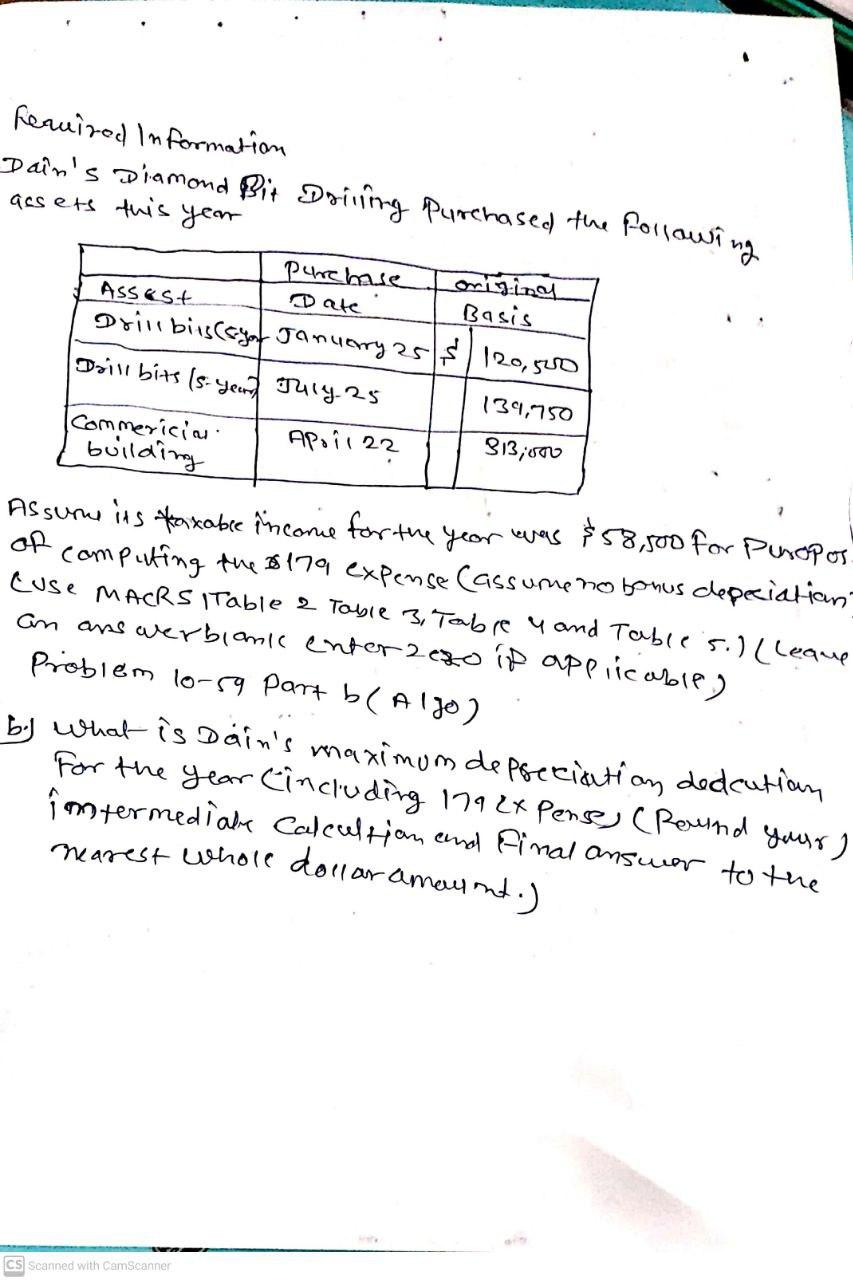 Required Information
Dain's Diamond Bit Drilling Purchased the following
assets this year
Purchase original
Assest Date Basis
Drill bits (5-year January 25 $ 120,500
Drill bits (5-year) July-25 139,750
Commericial building April 22 813,000
Assume its taxable income for the year was $58,500 for Puropos
of computing the $179 expense (assume no bonus depeciation)
(use MACRS 1Table 2 Table 3, Table 4 and Table 5.) (Leave
an answer blank enter zero if applicable)
Problem 10-59 Part b (Algo)
b.) What is Dain's maximum depreciation dedcution
for the year (including 179 expense) (Round your)
intermediate calcultion and final answer to the
nearest whole dollar amount.)
CS Scanned with CamScanner